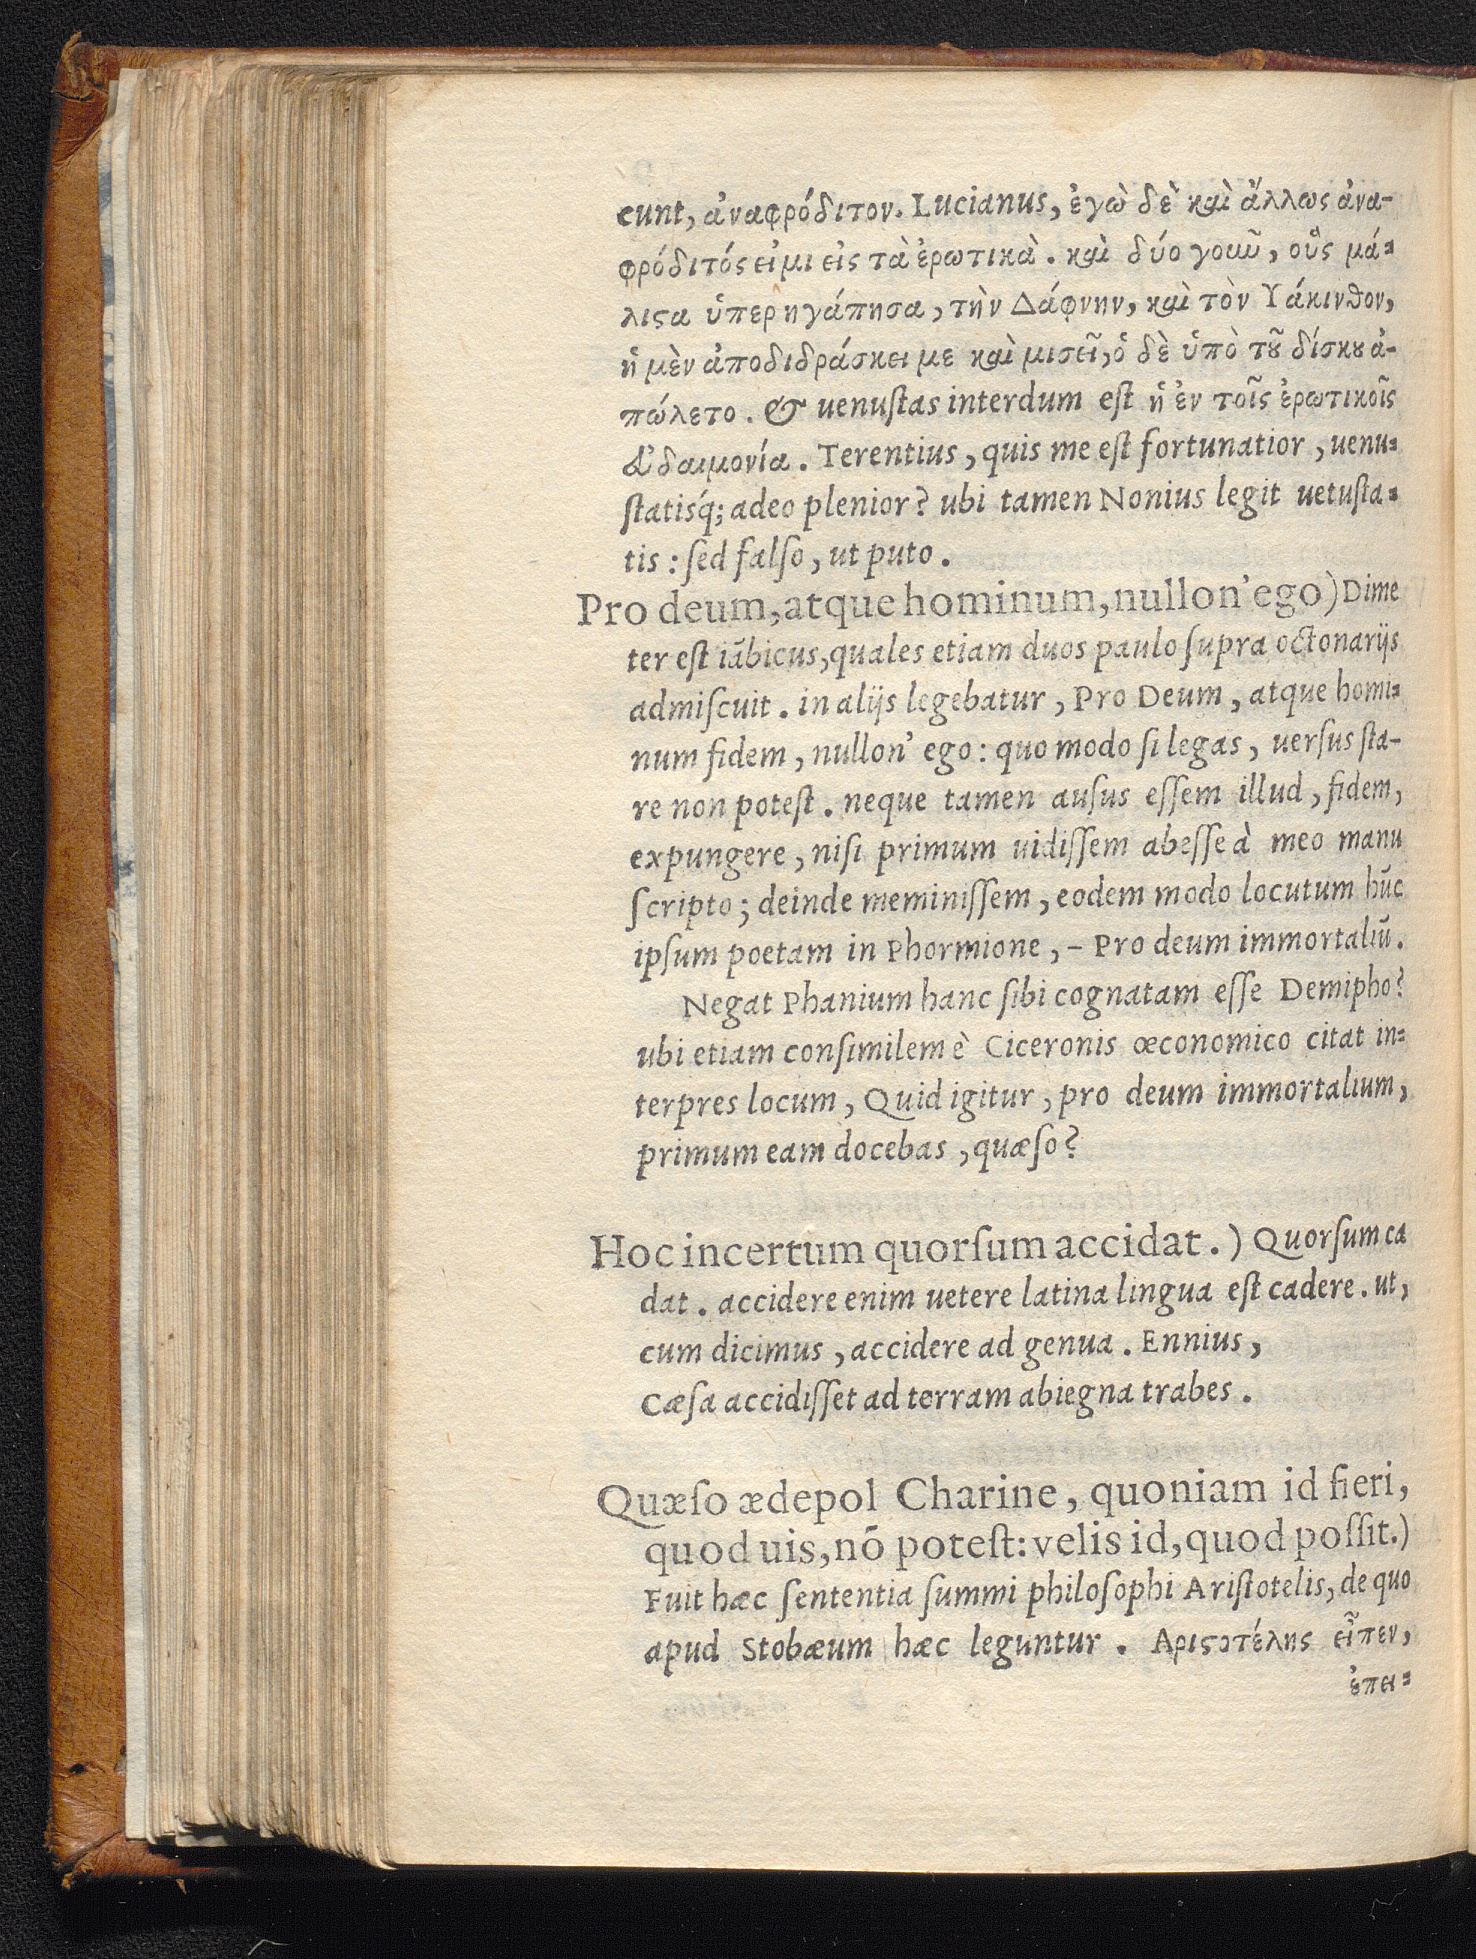 cunt, ἀναφρόδιτον. Lucianus, ἐγὼ δὲ καὶ ἄλλως ἀνα-
φρόδιτός εἰμι εἰς τὰ ἐρωτικὰ. καὶ δύο γοιῦ, οὓς μά=
λιςα ὑπερηγάπησα, τὴν Δάφνην, καὶ τὸν Υάκινθον,
ἡ μὲν ἀποδιδράσκει με καὶ μισεῖ, ὁ δὲ ὑπὸ τȣ͂ δίσκȣ ἀ-
πώλετο. & uenuſtas interdum eſt ἡ ἐν τοῖς ἐρωτικοῖς
εὐδαιμονία. Terentius, quis me eſt fortunatior, uenu=
ſtatisq́; adeo plenior? ubi tamen Nonius legit uetuſta=
tis: ſed falſo, ut puto.
Pro deum, atque hominum, nullon' ego) Dime
ter eſt iãbicus, quales etiam duos paulo ſupra octonarijs
admiſcuit. in alijs legebatur, Pro Deum, atque homi=
num fidem, nullon' ego: quo modo ſi legas, uerſus ſta-
re non poteſt. neque tamen auſus eſſem illud, fidem,
expungere, niſi primum uidiſſem abeſſe à meo manu
ſcripto; deinde meminiſſem, eodem modo locutum hũc
ipſum poetam in Phormione, - Pro deum immortaliũ.
Negat Phanium hanc ſibi cognatam eſſe Demipho?
ubi etiam conſimilem è Ciceronis œconomico citat in=
terpres locum, Quid igitur, pro deum immortalium,
primum eam docebas, quæſo?
Hoc incertum quorſum accidat.) Quorſum ca
dat. accidere enim uetere latina lingua eſt cadere. ut,
cum dicimus, accidere ad genua. Ennius,
Cæſa accidiſſet ad terram abiegna trabes.
Quæſo ædepol Charine, quoniam id fieri,
quod uis, nõ poteſt: velis id, quod poſſit.)
Fuit hæc ſententia ſummi philoſophi Ariſtotelis, de quo
apud Stobæum hæc leguntur. Αριςοτέλης εἶπεν,
ἐπει=